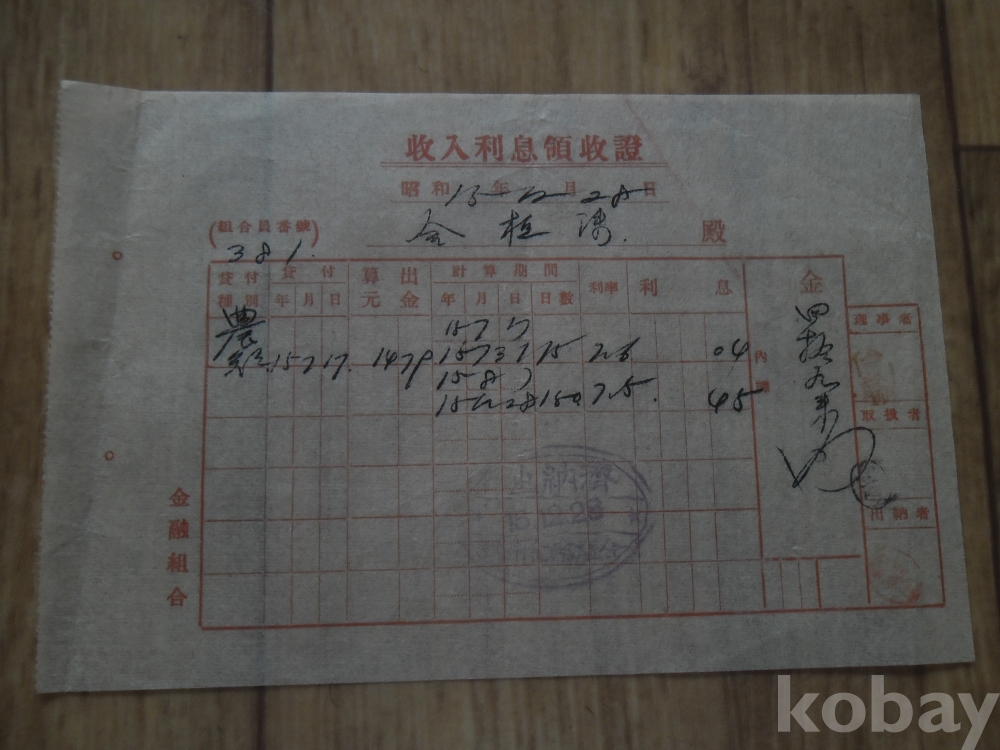 收入利息領收證
昭和15年12月28日
(組合員番號)
381.
金桓
殿
貸付種別 貸付年月日 算出元金 計算期間 年月日 日數 利率 利息
金四拾九
內譯
理事者
取扱者
出納者
農
15 7 17. 1479
15 7 31 15 26 04
15 8 1
15 12 28 150 45
出納濟
15.12.28
金融組合
kobay